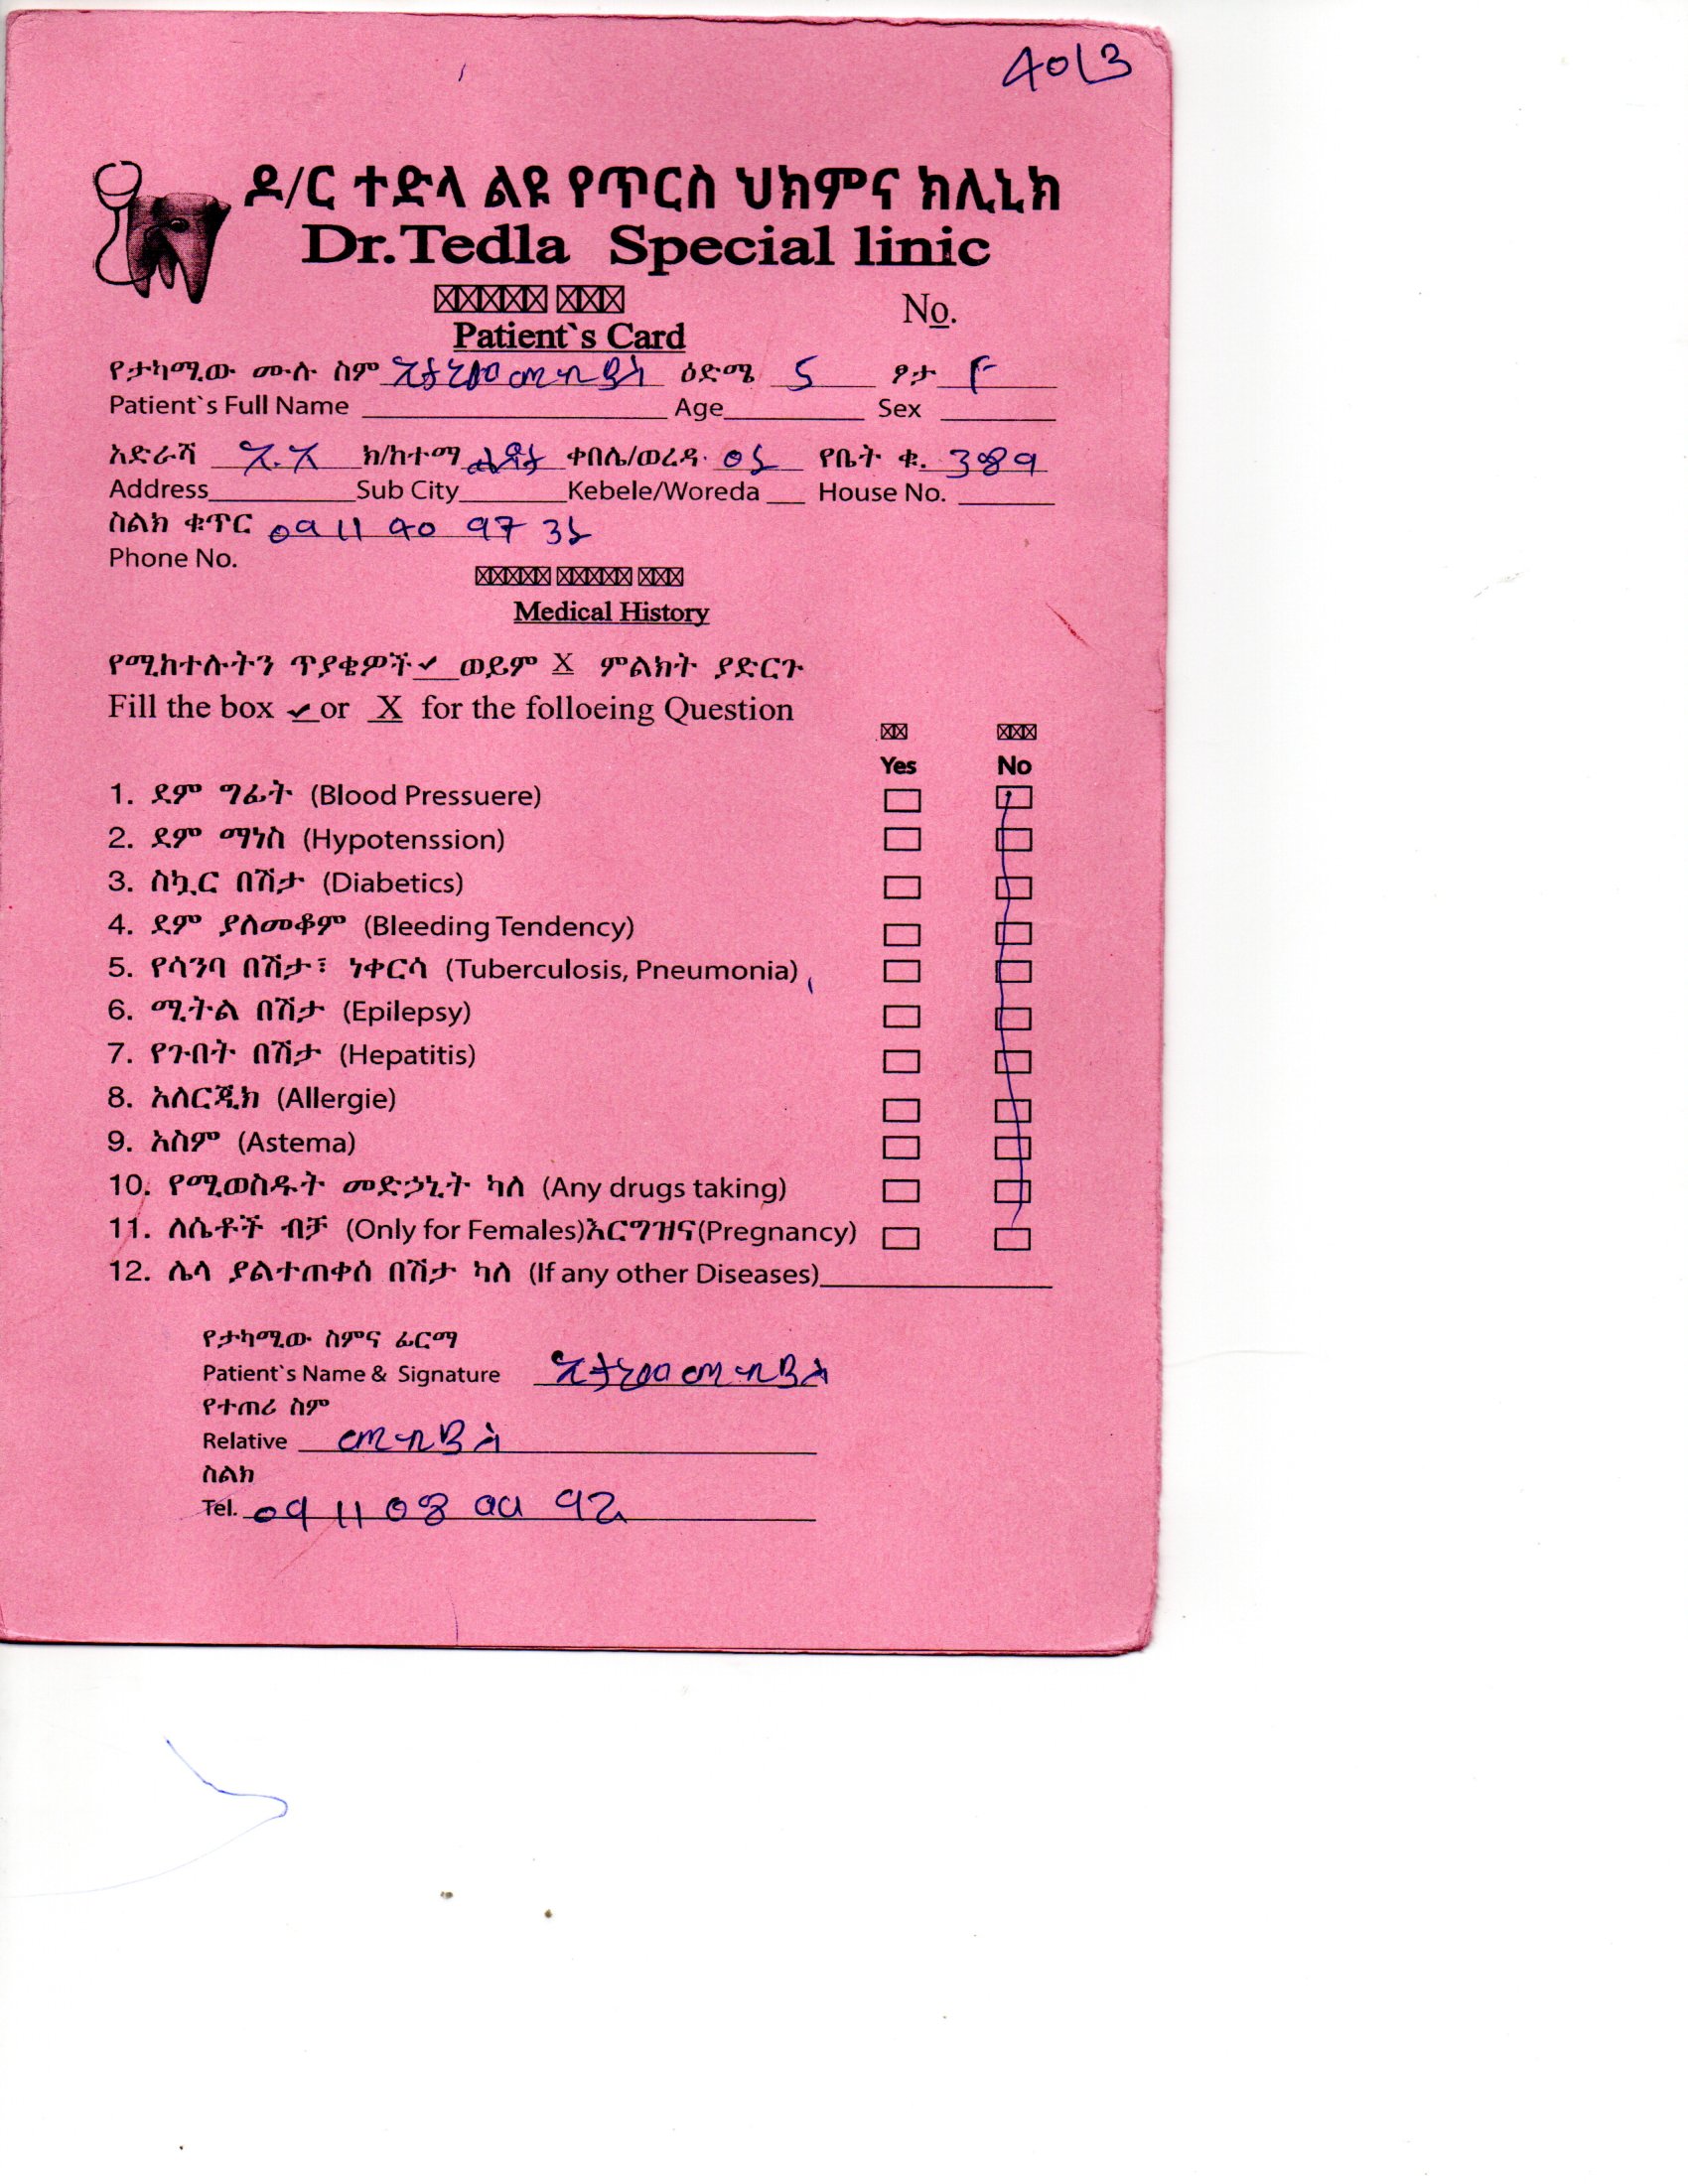 4013
ዶ/ር ተድላ ልዩ የጥርስ ህክምና ክሊኒክ
Dr.Tedla Special linic
No.
Patient`s Card
የታካሚው ሙሉ ስም ዕድሜ 5 ፆታ F
Patient`s Full Name Age Sex
አድራሻ አ.አ ክ/ከተማ ልደታ ቀበሌ/ወረዳ የቤት ቁ. 389
Address Sub City Kebele/Woreda House No.
ስልክ ቁጥር 0911
Phone No.
Medical History
የሚከተሉትን ጥያቄዎች ✓ ወይም X ምልክት ያድርጉ
Fill the box ✓ or X for the folloeing Question
Yes No
1. ደም ግፊት (Blood Pressuere)
2. ደም ማነስ (Hypotenssion)
3. ስኳር በሽታ (Diabetics)
4. ደም ያለመቆም (Bleeding Tendency)
5. የሳንባ በሽታ፣ ነቀርሳ (Tuberculosis, Pneumonia)
6. ሚትል በሽታ (Epilepsy)
7. የጉበት በሽታ (Hepatitis)
8. አለርጂክ (Allergie)
9. አስም (Astema)
10. የሚወስዱት መድኃኒት ካለ (Any drugs taking)
11. ለሴቶች ብቻ (Only for Females)እርግዝና(Pregnancy)
12. ሌላ ያልተጠቀሰ በሽታ ካለ (If any other Diseases)
የታካሚው ስምና ፊርማ
Patient`s Name & Signature
የተጠሪ ስም
Relative
ስልክ
Tel. 0911 08